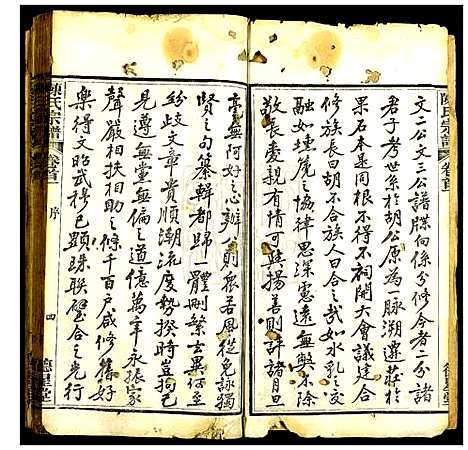 陳氏宗譜 卷首
德星堂
文二公文三公譜牒向係分修今者二分諸
君子考世系於胡公原爲一脉溯遷莊於
果石本是同根不得不祠開大會議建合
修族長曰胡不合族人曰合之哉如水乳之交
融如壎篪之協律思深慮遠無弊不除
敬長愛親有情可聯揚善則評諸月旦
毫無阿好之心辦
則衆若風從免詠獨
賢之句纂輯都歸一體刪繁去異何至
紛歧文章貴順潮流度勢揆時豈拘己
見遵無黨無偏之道億萬年永振家
聲嚴相扶相助之條千百戶咸修舊好
樂得文昭武穆已顯珠聯璧合之光行
陳氏宗譜 卷首 序 四 德星堂